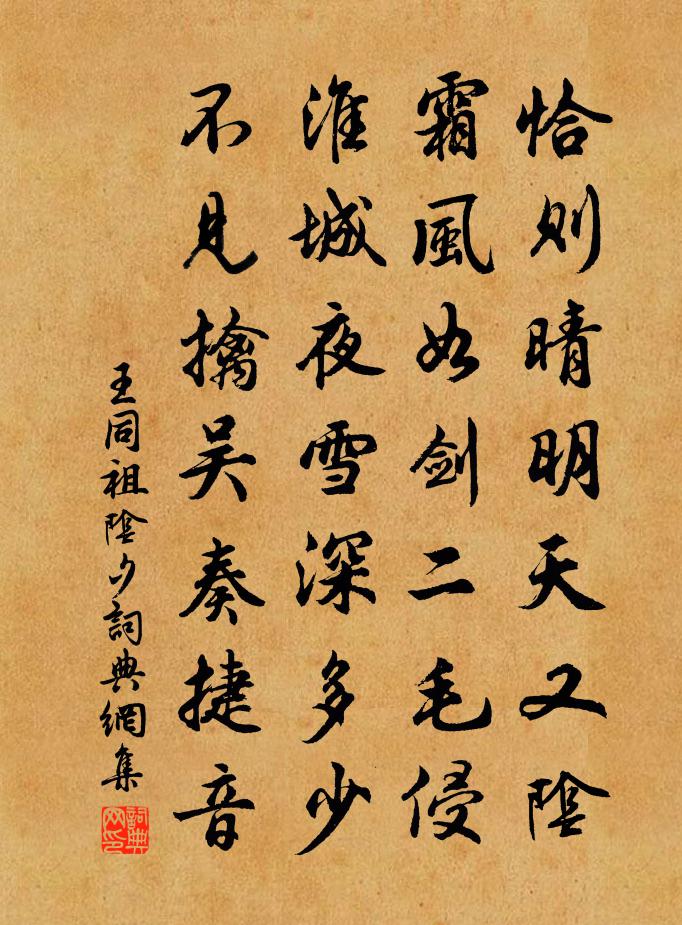 恰則晴明天又陰
霜風如劍二毛侵
淮城夜雪深多少
不見擒吳奏捷音
王同祖陰夕詞典網集
詞典网印